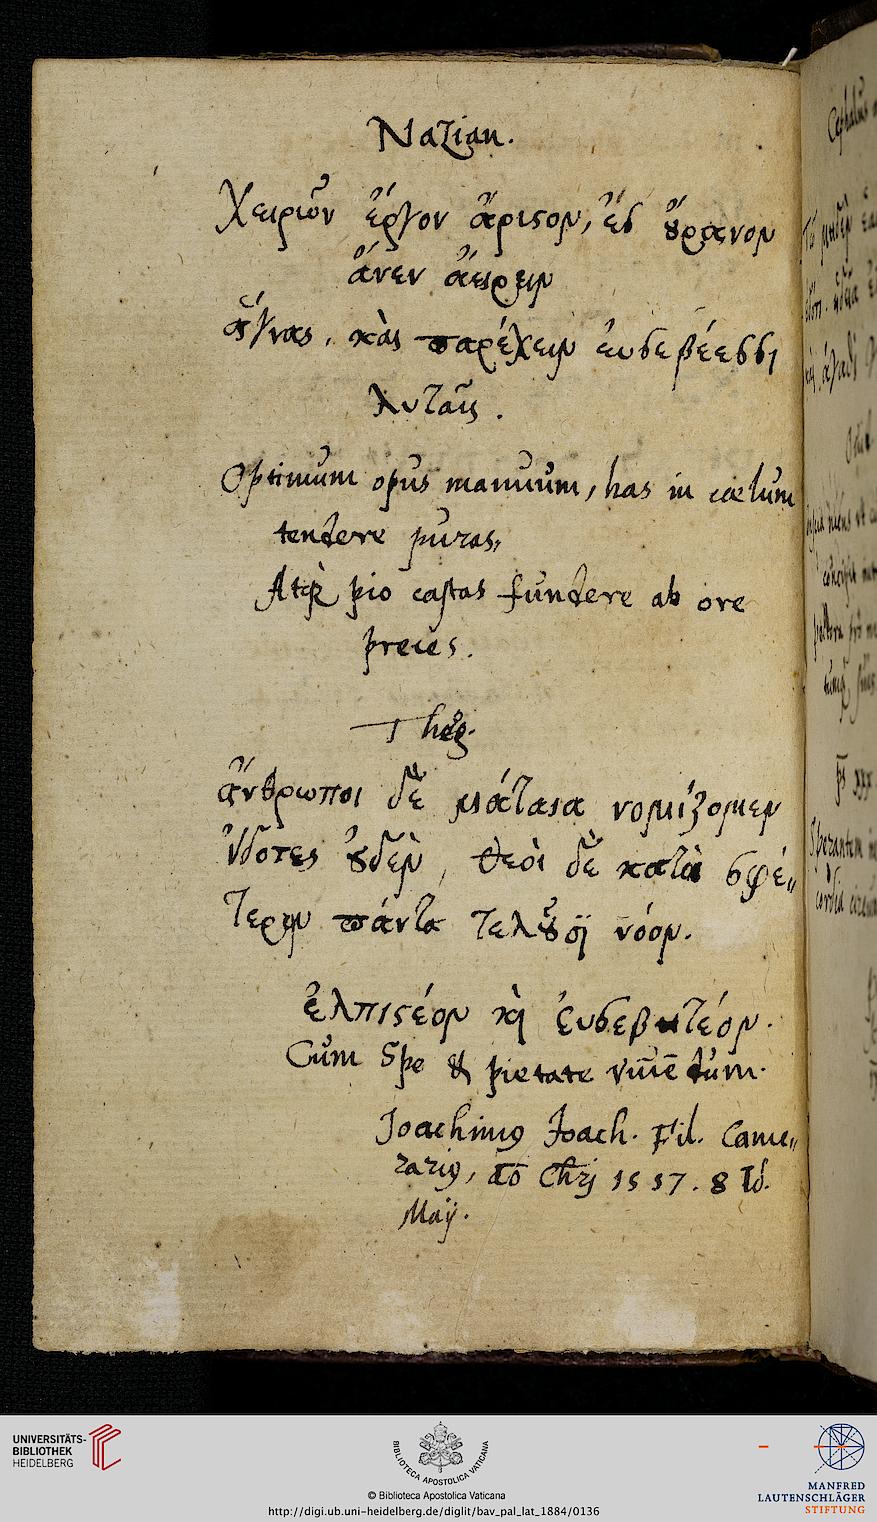 Nazian.
Χειρῶν ἔργον ἄριστον, ἐς ὄρανον
ἄνεν ἄειρειν
ἅγνας, καὶ παρέχειν ἐυσεβέεσσι
λυταῖς.
Optimum opus manuum, has in cœlum
tendere puras,
Atq; pio castas fundere ab ore
preces.
Theog.
ἄνθρωποι δὲ μάταια νομίζομεν
ἰδότες οὐδὲν, θεοὶ δὲ κατὰ σφέ„
τερον πάντα τελοῦσι νόον.
ἐλπιστέον κὴ ἐυσεβητέον.
Cum Spe & pietate viuendum.
Joachimus Joach. Fil. Came„
rarius, Ao Chrj 1557. 8 Id.
Maij.
UNIVERSITÄTS-
BIBLIOTHEK
HEIDELBERG
BIBLIOTECA APOSTOLICA VATICANA
© Biblioteca Apostolica Vaticana
http://digi.ub.uni-heidelberg.de/diglit/bav_pal_lat_1884/0136
MANFRED
LAUTENSCHLÄGER
STIFTUNG